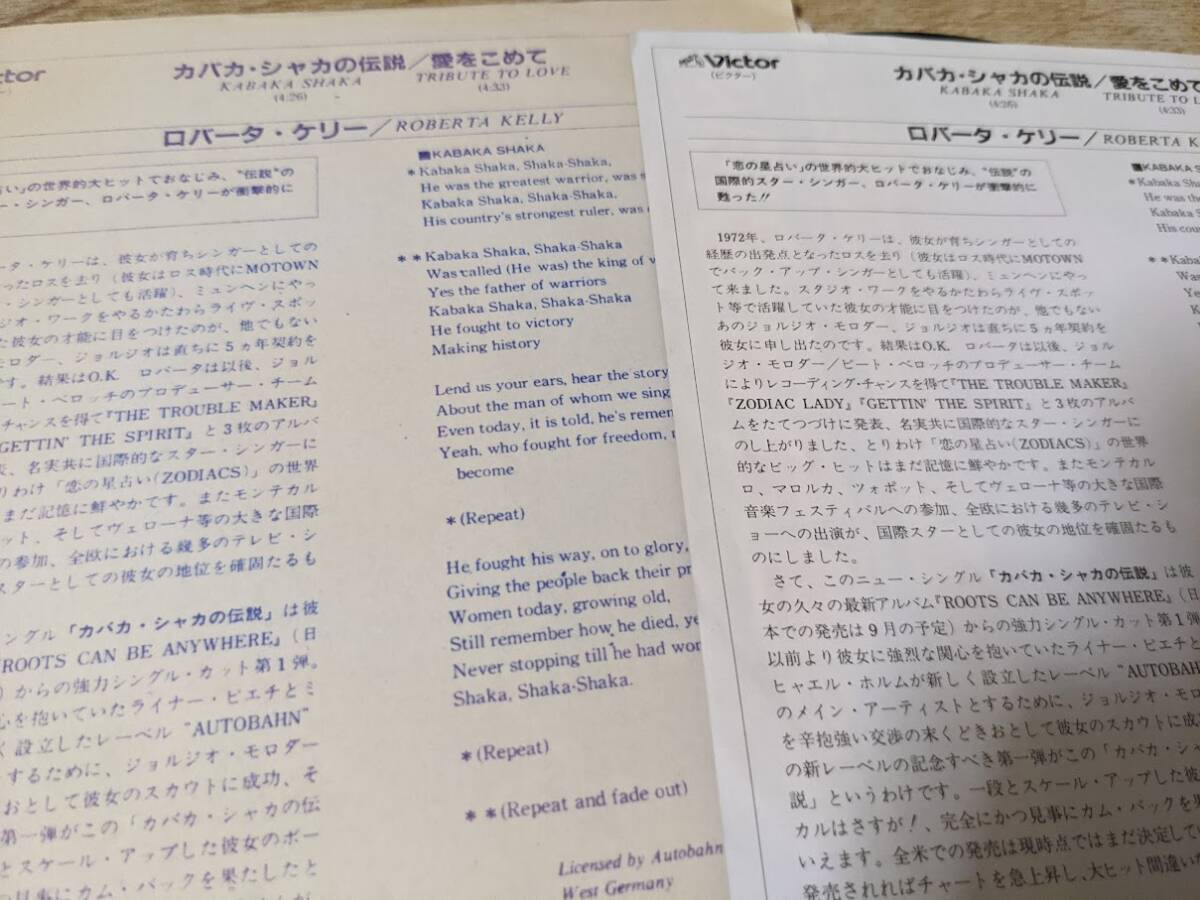 ctor
カバカ・シャカの伝説／愛をこめて
KABAKA SHAKA
(4:26)
TRIBUTE TO LOVE
(4:33)
ロバータ・ケリー／ROBERTA KELLY
占い」の世界的大ヒットでおなじみ、“伝説”の
ー・シンガー、ロバータ・ケリーが衝撃的に
ータ・ケリーは、彼女が育ちシンガーとしての
なったロスを去り（彼女はロス時代にMOTOWN
・シンガーとしても活躍）、ミュンヘンにやっ
ジオ・ワークをやるかたわらライヴ・スポッ
た彼女の才能に目をつけたのが、他でもない
モロダー、ジョルジオは直ちに５ヵ年契約を
です。結果はO.K. ロバータは以後、ジョル
ート・ベロッチのプロデューサー・チーム
チャンスを得て『THE TROUBLE MAKER』
GETTIN' THE SPIRIT』と３枚のアルバ
表、名実共に国際的なスター・シンガーに
りわけ「恋の星占い(ZODIACS)」の世界
まだ記憶に鮮やかです。またモンテカル
ット、そしてヴェローナ等の大きな国際
の参加、全欧における幾多のテレビ・シ
スターとしての彼女の地位を確固たるも
ングル「カバカ・シャカの伝説」は彼
ROOTS CAN BE ANYWHERE』（日
）からの強力シングル・カット第１弾。
心を抱いていたライナー・ピエチとミ
く設立したレーベル“AUTOBAHN”
するために、ジョルジオ・モロダー
おとして彼女のスカウトに成功、そ
第一弾がこの「カバカ・シャカの伝
とスケール・アップした彼女のボー
見事にカム・バックを果たしたと
■KABAKA SHAKA
＊Kabaka Shaka, Shaka-Shaka,
He was the greatest warrior, was
Kabaka Shaka, Shaka-Shaka,
His country's strongest ruler, was
＊＊Kabaka Shaka, Shaka-Shaka
Was called (He was) the king of
Yes the father of warriors
Kabaka Shaka, Shaka-Shaka
He fought to victory
Making history
Lend us your ears, hear the story
About the man of whom we sing
Even today, it is told, he's
Yeah, who fought for freedom,
become
＊(Repeat)
He fought his way, on to glory,
Giving the people back their
Women today, growing old,
Still remember how he died,
Never stopping till he had
Shaka, Shaka-Shaka.
＊(Repeat)
＊＊(Repeat and fade out)
Licensed by Autobahn
West Germany
Victor
(ビクター)
カバカ・シャカの伝説／愛をこめて
KABAKA SHAKA
(4:26)
TRIBUTE TO L
(4:33)
ロバータ・ケリー／ROBERTA K
「恋の星占い」の世界的大ヒットでおなじみ、“伝説”の
国際的スター・シンガー、ロバータ・ケリーが衝撃的に
甦った!!
1972年、ロバータ・ケリーは、彼女が育ちシンガーとしての
経歴の出発点となったロスを去り（彼女はロス時代にMOTOWN
でバック・アップ・シンガーとしても活躍）、ミュンヘンにやっ
て来ました。スタジオ・ワークをやるかたわらライヴ・スポッ
ト等で活躍していた彼女の才能に目をつけたのが、他でもない
あのジョルジオ・モロダー、ジョルジオは直ちに５ヵ年契約を
彼女に申し出たのです。結果はO.K. ロバータは以後、ジョル
ジオ・モロダー／ピート・ベロッチのプロデューサー・チーム
によりレコーディング・チャンスを得て『THE TROUBLE MAKER』
『ZODIAC LADY』『GETTIN' THE SPIRIT』と３枚のアルバ
ムをたてつづけに発表、名実共に国際的なスター・シンガーに
のし上がりました、とりわけ「恋の星占い(ZODIACS)」の世界
的なビッグ・ヒットはまだ記憶に鮮やかです。またモンテカル
ロ、マロルカ、ツォポット、そしてヴェローナ等の大きな国際
音楽フェスティバルへの参加、全欧における幾多のテレビ・シ
ョーへの出演が、国際スターとしての彼女の地位を確固たるも
のにしました。
さて、このニュー・シングル「カバカ・シャカの伝説」は彼
女の久々の最新アルバム『ROOTS CAN BE ANYWHERE』（日
本での発売は９月の予定）からの強力シングル・カット第１弾
以前より彼女に強烈な関心を抱いていたライナー・ピエチと
ヒャエル・ホルムが新しく設立したレーベル“AUTOBAHN
のメイン・アーティストとするために、ジョルジオ・モロ
を辛抱強い交渉の末くどきおとして彼女のスカウトに成
の新レーベルの記念すべき第一弾がこの「カバカ・シャ
説」というわけです。一段とスケール・アップした彼
カルはさすが！、完全にかつ見事にカム・バックを果
いえます。全米での発売は現時点ではまだ決定して
発売されればチャートを急上昇し、大ヒット間違い
■KABAKA S
＊Kabaka Sh
He was the
Kabaka
His coun
＊＊Kaba
Was
Yes
K